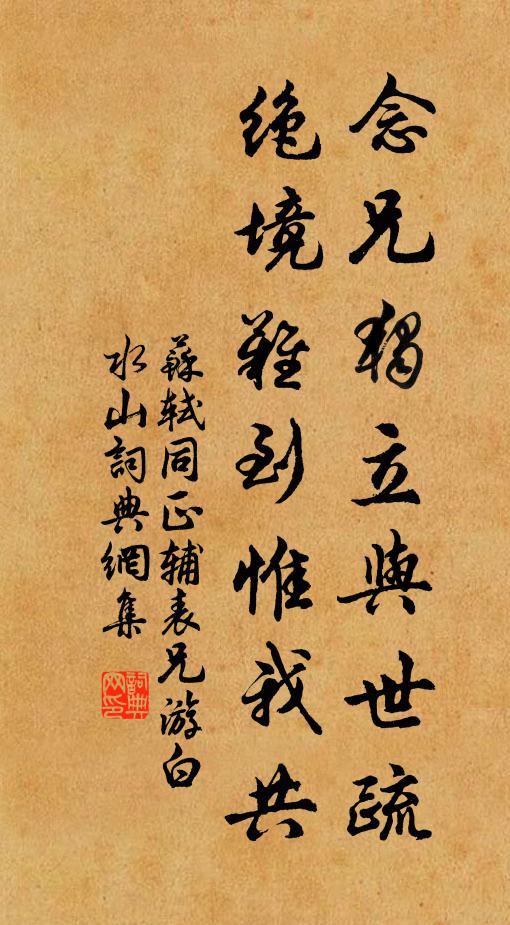 念兄獨立與世疏
絶境難到惟我共
蘇軾同正輔表兄游白
水山詞典網集
詞典网印